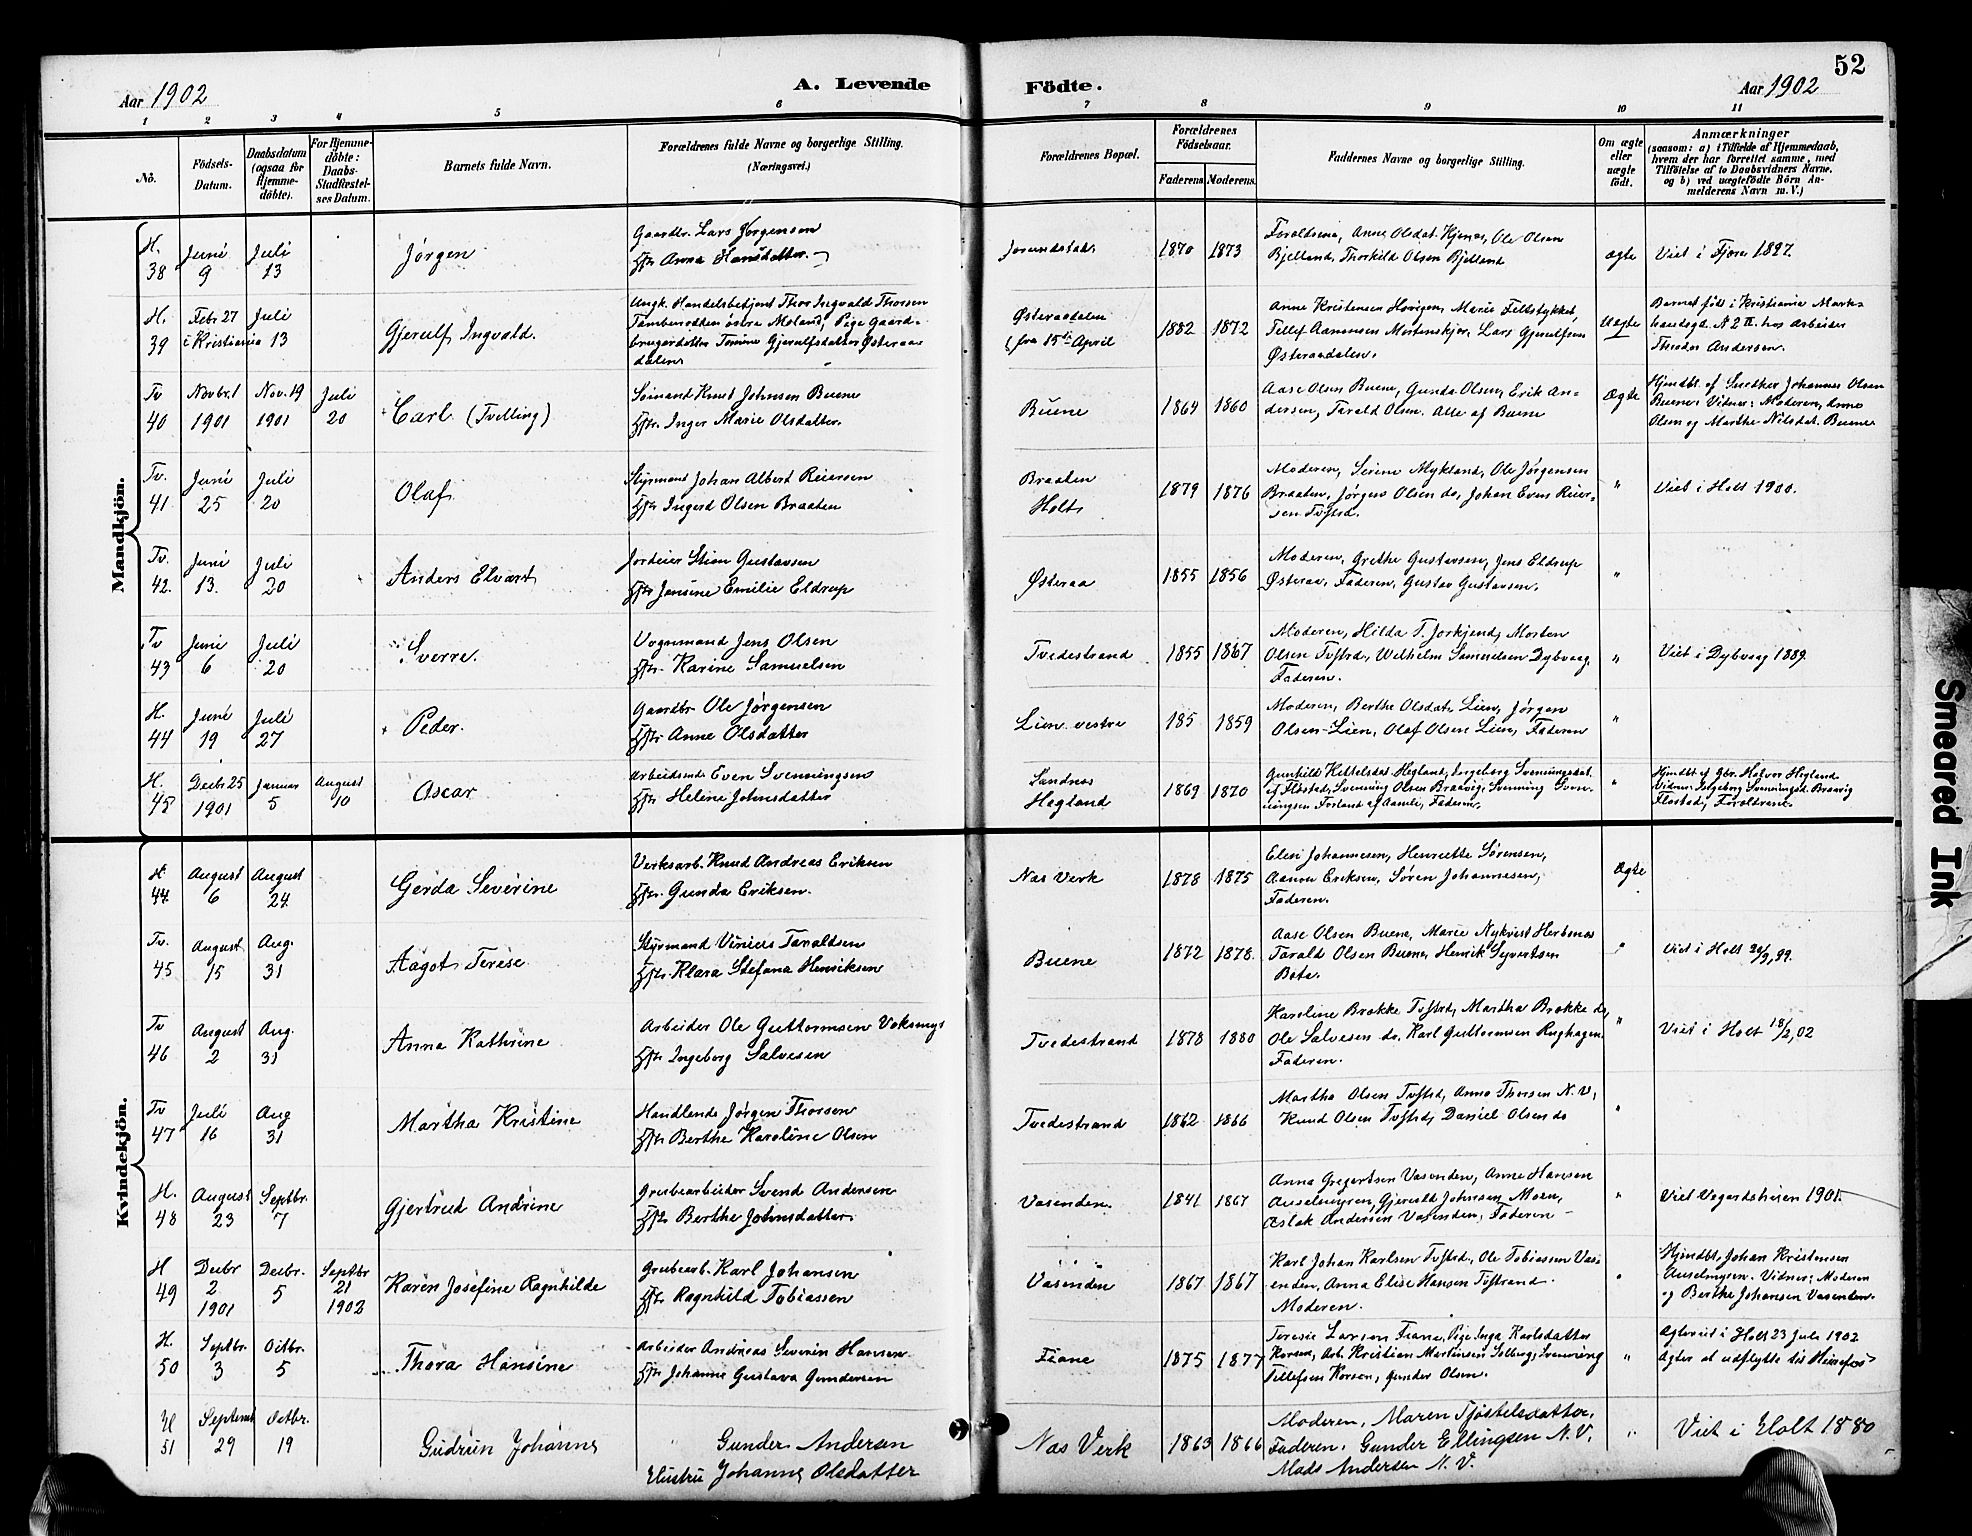 52
Aar 1902
A. Levende Födte.
Aar 1902
1 2 3 4 5 6 7 8 9 10 11
No.
Födsels-Datum.
Daabsdatum (ogsaa for Hjemme-döbte).
For Hjemme-döbte: Daabs-Stadfæstel-ses Datum.
Barnets fulde Navn.
Forældrenes fulde Navne og borgerlige Stilling. (Næringsvei.)
Forældrenes Bopæl.
Forældrenes Födselsaar.
Faderens. Moderens.
Faddernes Navne og borgerlige Stilling.
Om ægte eller uægte födt.
Anmærkninger
(saasom: a) i Tilfælde af Hjemmedaab,
hvem der har forrettet samme, med
Tilföielse af to Daabsvidners Navne,
og b) ved uægtefödte Börn An-
melderens Navn m. V.)
Mandkjön.
H. 38 Juni 9 Juli 13 Jørgen
Gaardbr. Lars Jørgensen
Hstr. Anna Hansdatter.
1870 1873
Anne Olsdat. Hjenes, Ole Olsen
Bjelland, Thorkild Olsen Bjelland
ægte
Viet i Fjære 1897.
H. 39 Febr 27 i Kristiania Juli 13 Gjerulf Ingvald.
Ungk. Handelsbetjent Thor Ingvald Thorsen
østre Moland, Pige Gaard-
brugerdatter Tomine Gjerulfsdatter Østeraa-
dalen
Østeraadalen
fra 15de April
1882 1872
Tellef Aanonsen Mortenskjær, Lars Gjerulfsen
Østeraadalen.
Uægte
Barnet født i Kristiania Mark-
N 2 II. hos Arbeider
Theodor Andersen.
Tv 40 Novbr. 1 1901 Nov. 19 1901 Juli 20 Carl (Tvilling)
Sømand Knut Johnsen Buene
Hstr. Inger Marie Olsdatter.
Buene
1864 1860
Aase Olsen Buene, Gunda Olsen, Erik An-
dersen, Tarald Olsen. Alle af Buene
Ægte
Hjmdbt. af Snedker Johannes Olsen
Buene: Vidner: Moderen, Anne
Olsen og Marthe Nilsdat. Buene
Tv. 41 Juni 25 Juli 20 Olaf
Styrmand Johan Albert Reiersen
Hstr Ingerd Olsen Braaten
Braaten
Holt
1879 1876
Moderen, Serine Mykland, Ole Jørgensen
Braaten, Jørgen Olsen do, Johan Even Reier-
sen Tvstrd.
"
Viet i Holt 1900.
Tv 42. Juni 13. Juli 20 Anders Elvart
Jordeier Stian Gustavsen
Hstr Jensine Emilie Eldrup
Østeraa
1855 1856
Moderen, Grethe Gustavsen, Jens Eldrup
Østeraa, Faderen, Gustav Gustavsen.
"
Tv 43 Juni 6 Juli 20 Sverre.
Vognmand Jens Olsen
Hstr. Karine Samuelsen
Tvedestrand
1855 1867
Moderen, Hilda T. Jorkjend, Morten
Olsen Tvstrd, Wilhelm Samuelsen Dybvaag,
Faderen.
"
Viet i Dybvaag 1889.
H. 44 Juni 19 Juli 27 Peder.
Gaardbr Ole Jørgensen
Hstr. Anne Olsdatter
Lien vestre
185 1859
Moderen, Berthe Olsdat. Lien, Jørgen
Olsen Lien, Olaf Olsen Lien, Faderen
"
H. 45 Decbr 25 1901 Januar 5 August 10 Oscar
Arbeidsmd. Even Svenningsen
Hstr. Helene Johnsdatter
Sandnes
Hegland
1869 1870
Gunhild Kittelsdat. Hegland, Ingeborg Svenningsdat.
af Flosta, Svenning Olsen Braavig, Svenning Sven-
ningsen Faderen.
"
Hjmdbt af Gbr. Halvor Hegland
Vidner: Ingeborg Svenningsd. Braavig
Flosta, Forældrene.
Kvindekjön.
H. 44 August 6 August 24 Gerda Severine
Verksarb. Knud Andreas Eriksen
Hstr. Gunda Eriksen.
Nas Verk
1878 1875
Elen Johannesen, Henriette Sørensen,
Aanon Eriksen, Søren Johannesen,
Faderen.
Ægte
Tv. 45 August 15 Aug. 31 Aagot Terese
Styrmand Vinius Taraldsen
Hstr. Klara Stefana Henriksen
Buene
1872 1878.
Aase Olsen Buene, Marie Nykvist
Tarald Olsen Buene, Henrik Syvertsen
Bota.
"
Viet i Holt
Tv 46 August 2 Aug. 31 Anna Kathrine
Arbeider Ole Guttormsen Voksmyr
Hstr Ingeborg Salvesen
Tvedestrand
1878 1880
Karoline Brokke Tvstrd, Martha Brokke do,
Ole Salvesen do, Karl Guttormsen Rughagen,
Faderen.
"
Viet i Holt 18/2, 02
Tv 47 Juli 16 Aug 31 Martha Kristine
Handlende Jørgen Thorsen
Hstr Berthe Karoline Olsen
Tvedestrand
1862 1866
Martha Olsen Tvstrd, Anna Thorsen N. V,
Knud Olsen Tvstrd, Daniel Olsen do
"
H. 48 August 23 Septbr. 7 Gjertrud Andrine
Grubearbeider Svend Andersen
Hstr. Berthe Johnsdatter.
Vasenden.
1841 1867
Anna Gregertsen Vasenden, Anne Hansen
Auselmyren, Gjeruld Johnsen Moen,
Aslak Andersen Vasenden, Faderen
"
Viet Vegardsheien 1901.
H 49 Decbr 2 1901 Decbr. 5 Septbr 21 1902 Karen Josefine Ragnhilde
Grubearb. Karl Johansen
Hstr. Ragnhild Tobiassen
Vasenden
1867 1867
Karl Johan Karlsen Tvstrd, Ole Tobiassen Vas-
enden, Anna Elise Hansen Tvstrand.
Moderen.
"
Hjmdbt, Johan Kristensen
Auselmyren. Vidner: Moderen
og Berthe Johansen Vasenden.
H. 50 Septbr. 3 Octbr. 5 Thora Hansine
Arbeider Andreas Severin Hansen
Hstr. Johanne Gustava Gundersen
Fiane
1875 1877
Teresie Larsen Fiane, Pige Inga Karlsdatter
Korsen, Arb. Kristian Martinsen Solberg, Svenning
Tellefsen Korsen, Gunder Olsen.
"
Agteviet i Holt 23 Juli 1902
Agter at udflytte til
H 51 Septembr 29 Octbr. 19 Gudrun Johanne
Gunder Andersen
Hustru Johanne Olsdatter
Nas Verk
1863 1866
Moderen, Maren Tjøstelsdatter,
Faderen, Gunder Ellingsen N. V,
Mads Andersen N. V.
"
Viet i Holt 1880
Smeared Ink